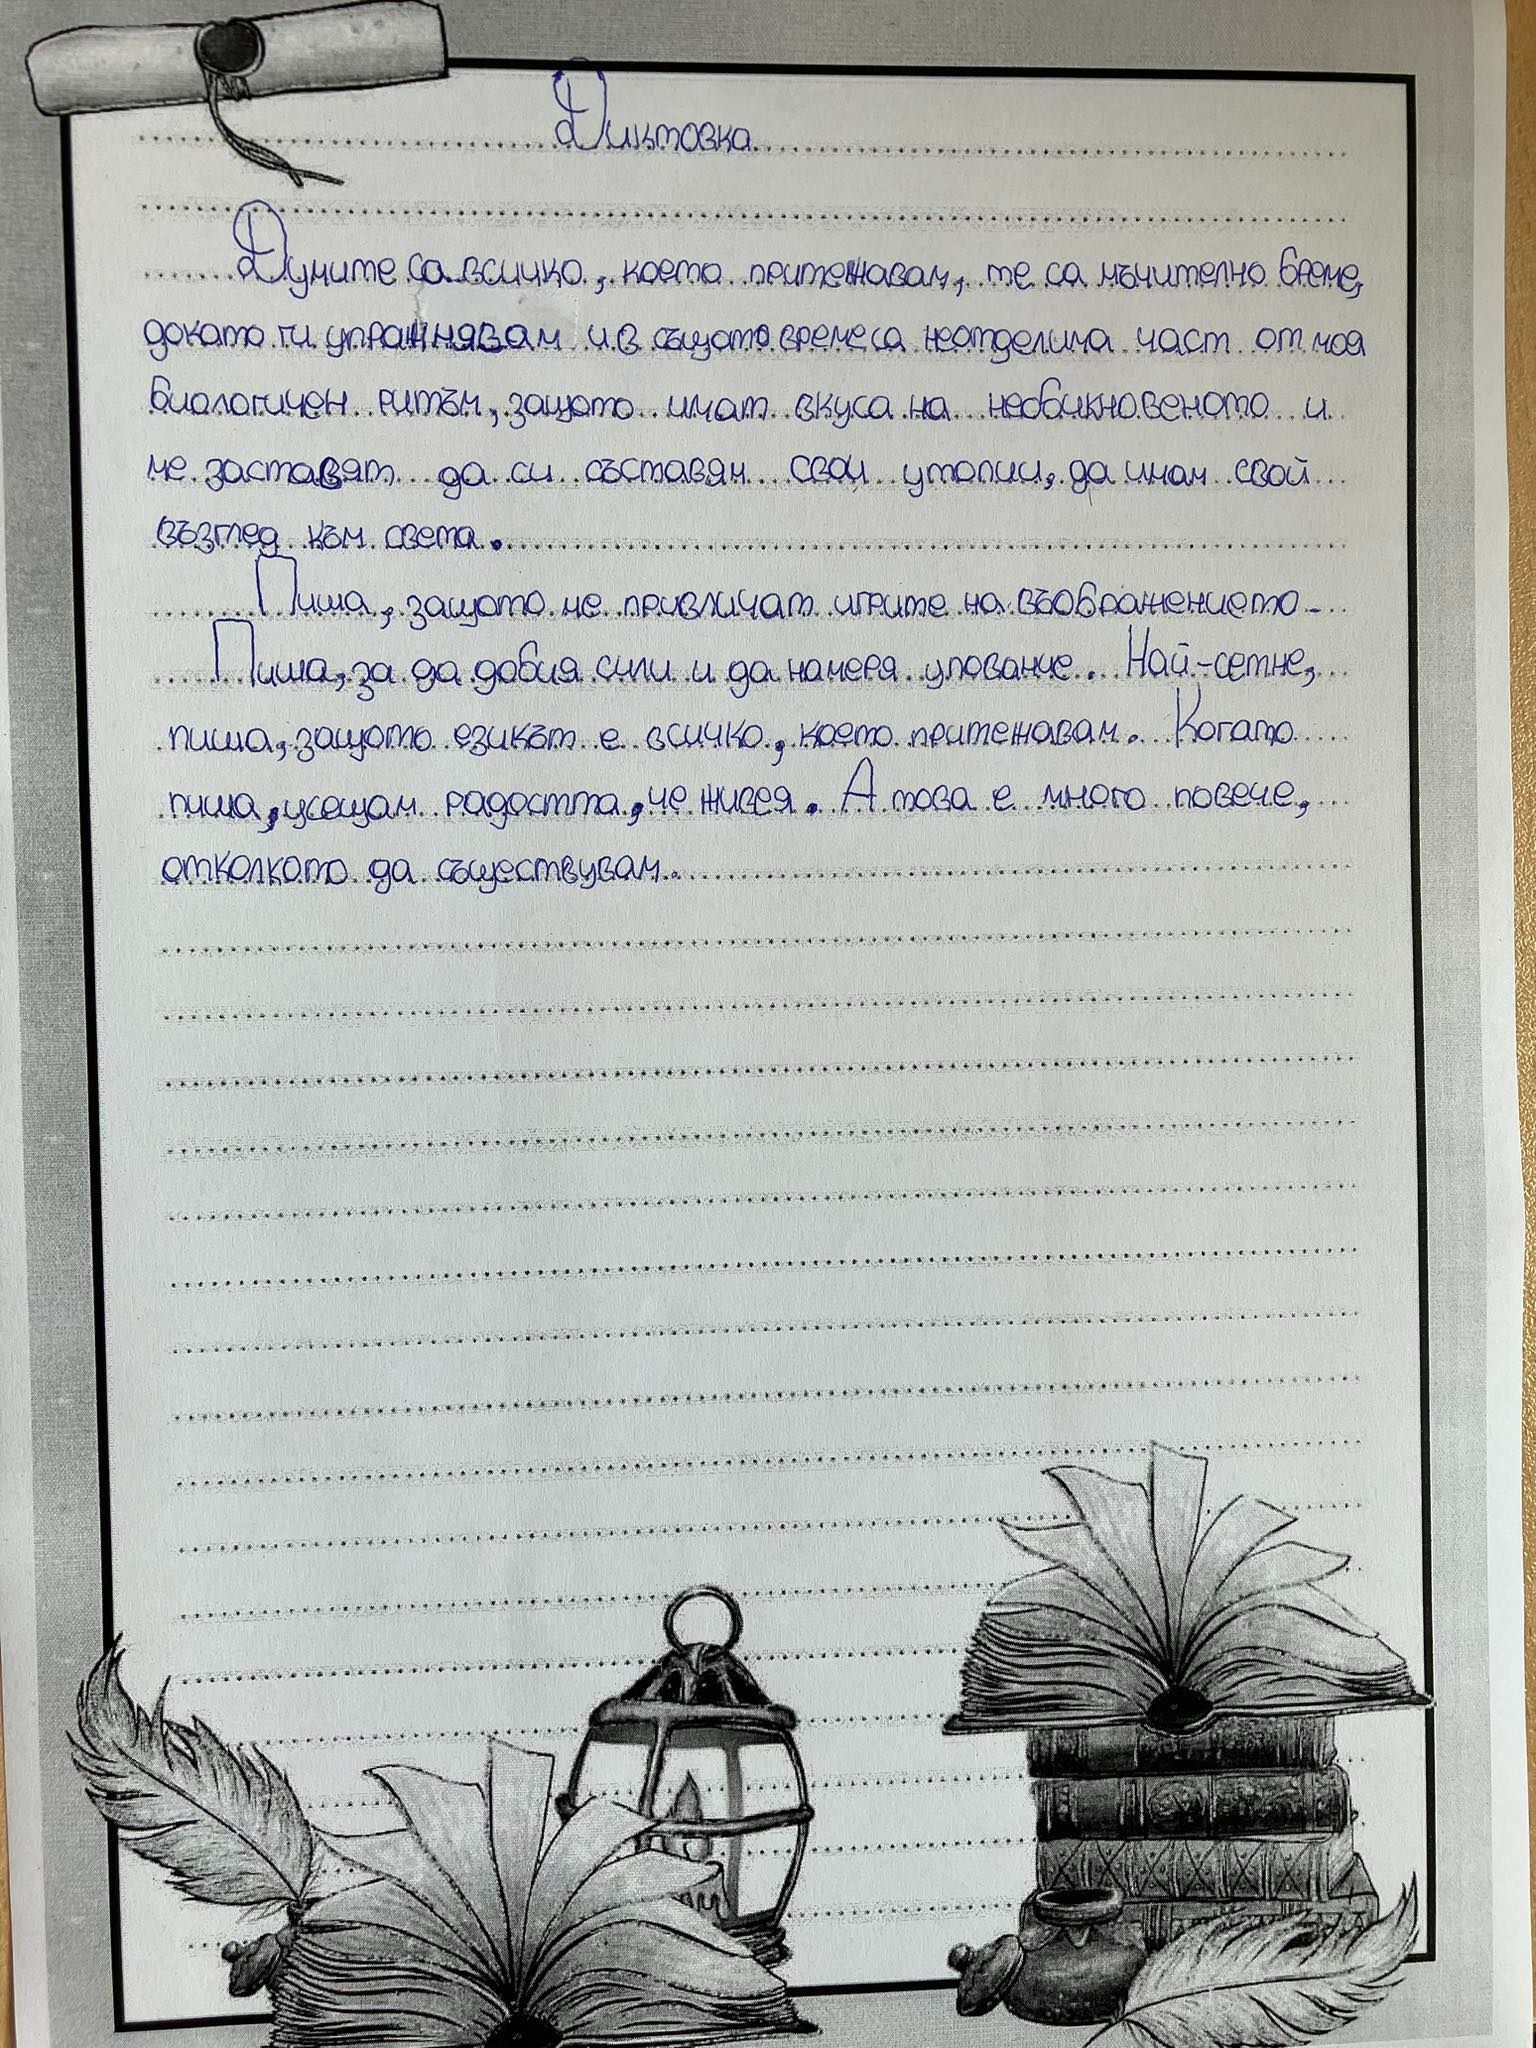 Диктовка
Думите са всичко, което притежавам, те са мъчително бреме,
докато ги упражнявам и в същото време са неотделима част от моя
биологичен ритъм, защото имат вкуса на необикновеното и
ме заставят да си съставям свои утопии, да имам свой
възглед към света.
Пиша, защото ме привличат игрите на въображението -
Пиша, за да добия сили и да намеря упование. Най-сетне,
пиша, защото езикът е всичко, което притежавам. Когато
пиша, усещам радостта, че живея. А това е много повече,
отколкото да съществувам.